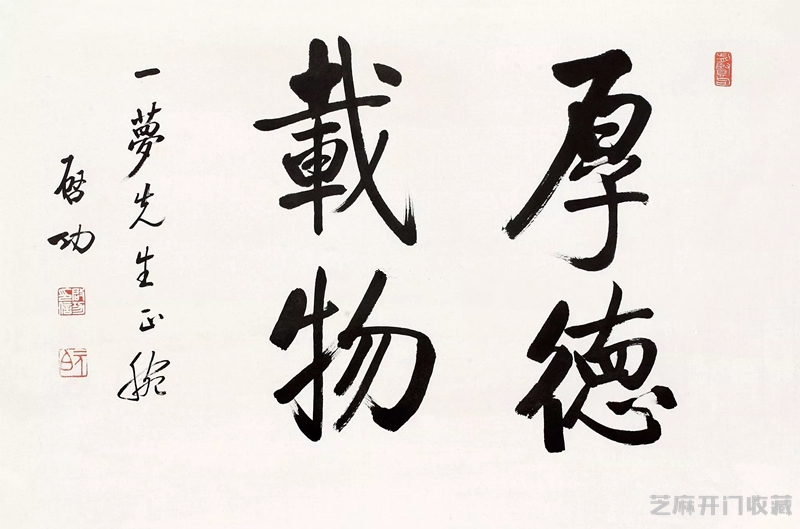 厚德
載物
一夢先生正腕
啓功
芝麻开门收藏